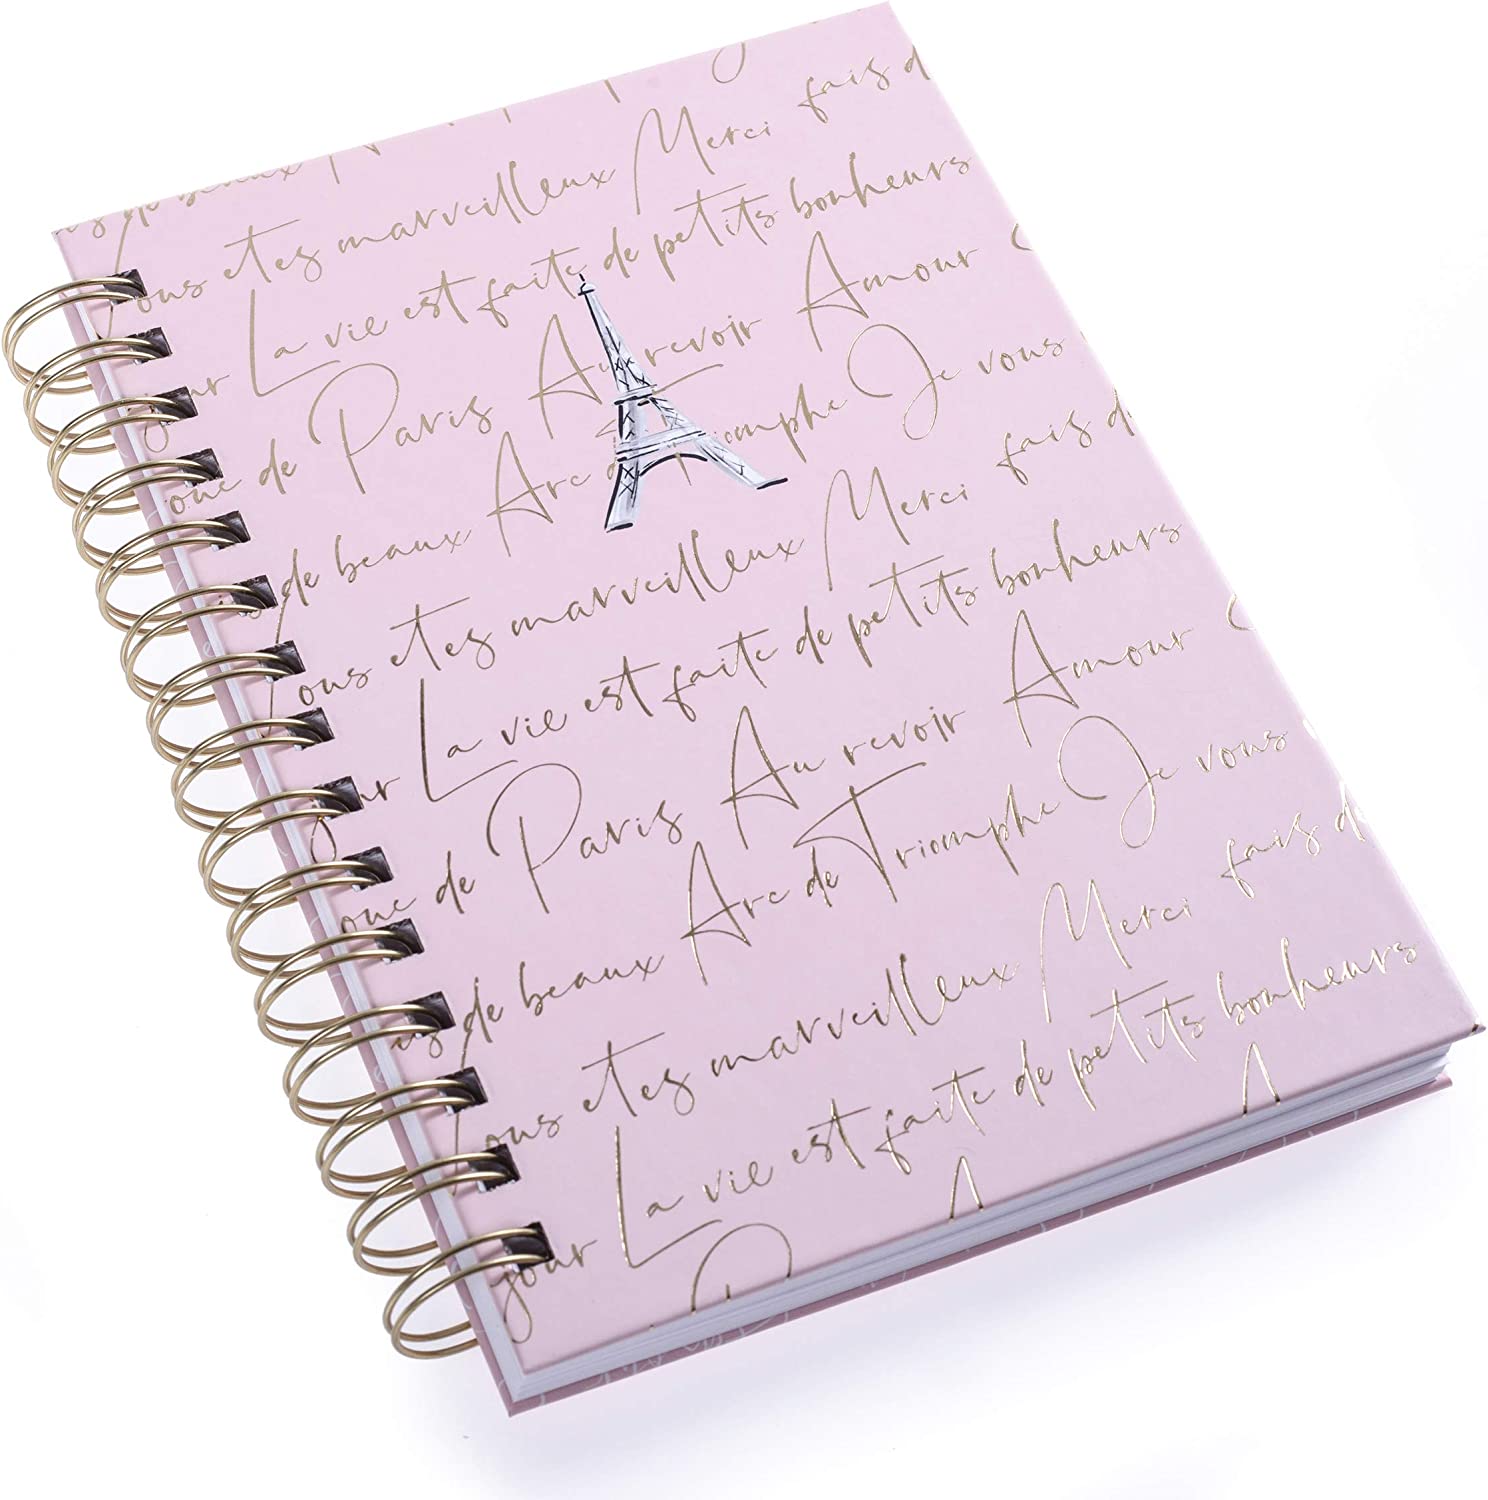 de beaux
ous etes marveilleux Merci fais d
our La vie est faite de petits bonheurs
oue de Paris Au revoir Amour
de beaux Arc de Triomphe Je vous
ous etes marveilleux Merci fais d
our La vie est faite de petits bonheurs
oue de Paris Au revoir Amour
us de beaux Arc de Triomphe Je vous
ous etes marveilleux Merci fais d
jour La vie est faite de petits bonheurs